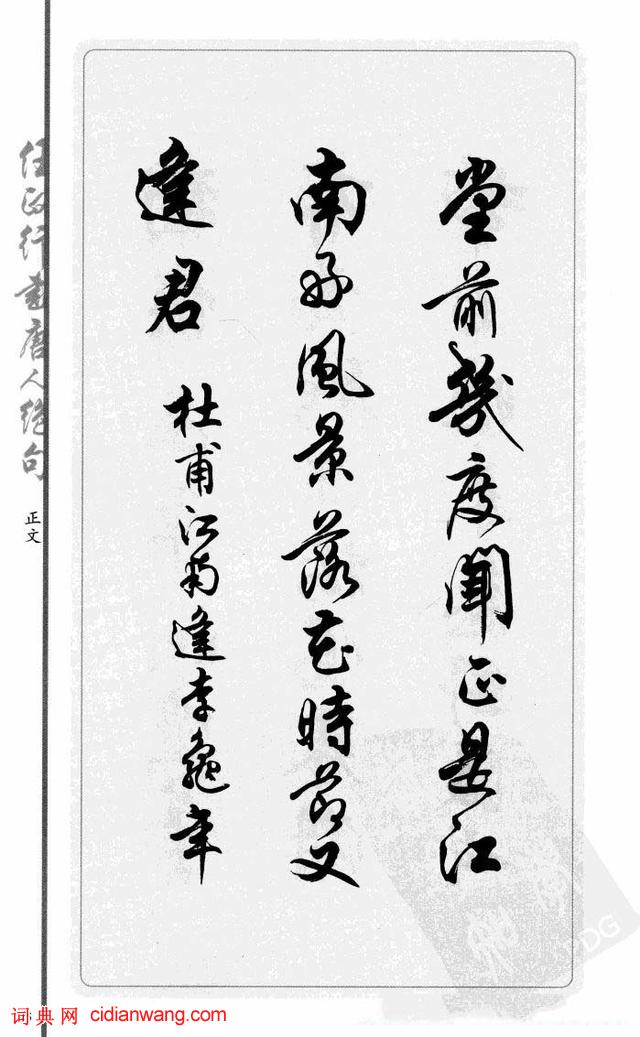 堂前幾度聞正是江
南好風景落花時節又
逢君
杜甫江南逢李龜年
任政行書唐人絕句
正文
词典网 cidianwang.com
DG